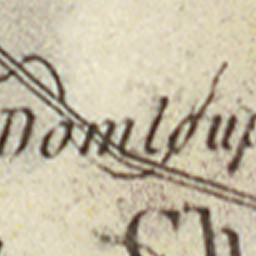 Domloup
Ch